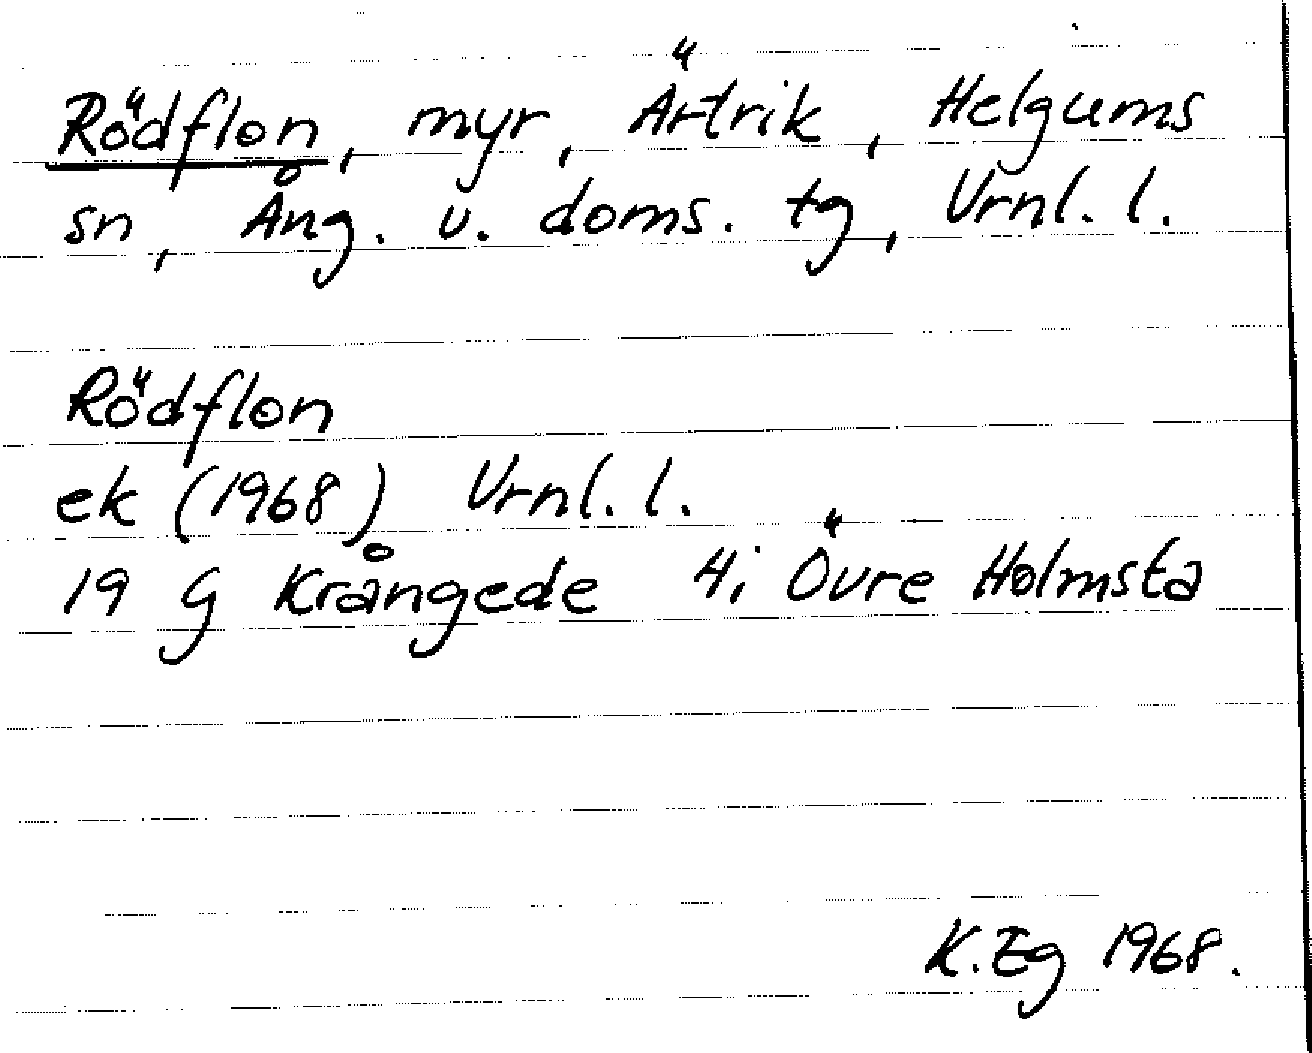 Rödflon, myr, Ärtrik, Helgums
sn, Ång. v. doms. tg, Vrnl. l.
Rödflon
ek (1968) Vrnl. l.
19 G Krångede 4i Övre Holmsta
K.Eg 1968.